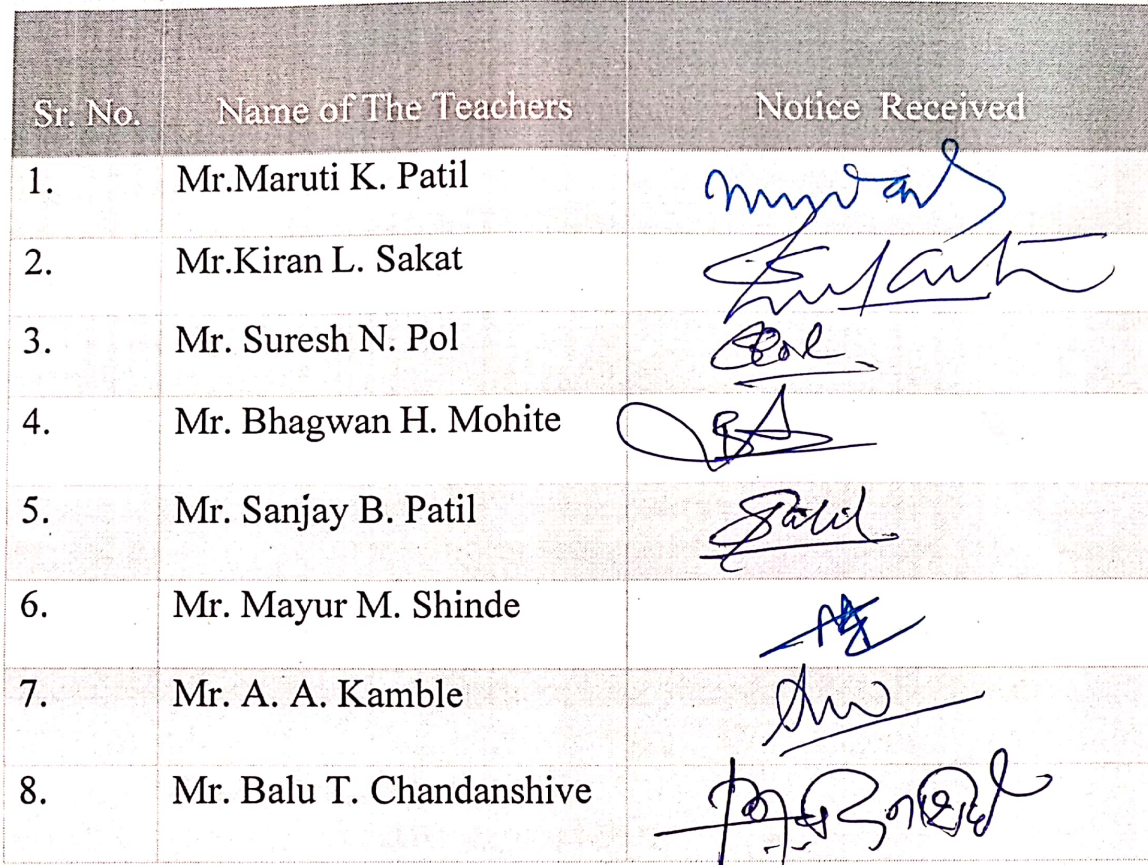 Sr. No. Name of The Teachers Notice Received
1. Mr.Maruti K. Patil
2. Mr.Kiran L. Sakat
3. Mr. Suresh N. Pol
4. Mr. Bhagwan H. Mohite
5. Mr. Sanjay B. Patil SPatil
6. Mr. Mayur M. Shinde
7. Mr. A. A. Kamble
8. Mr. Balu T. Chandanshive